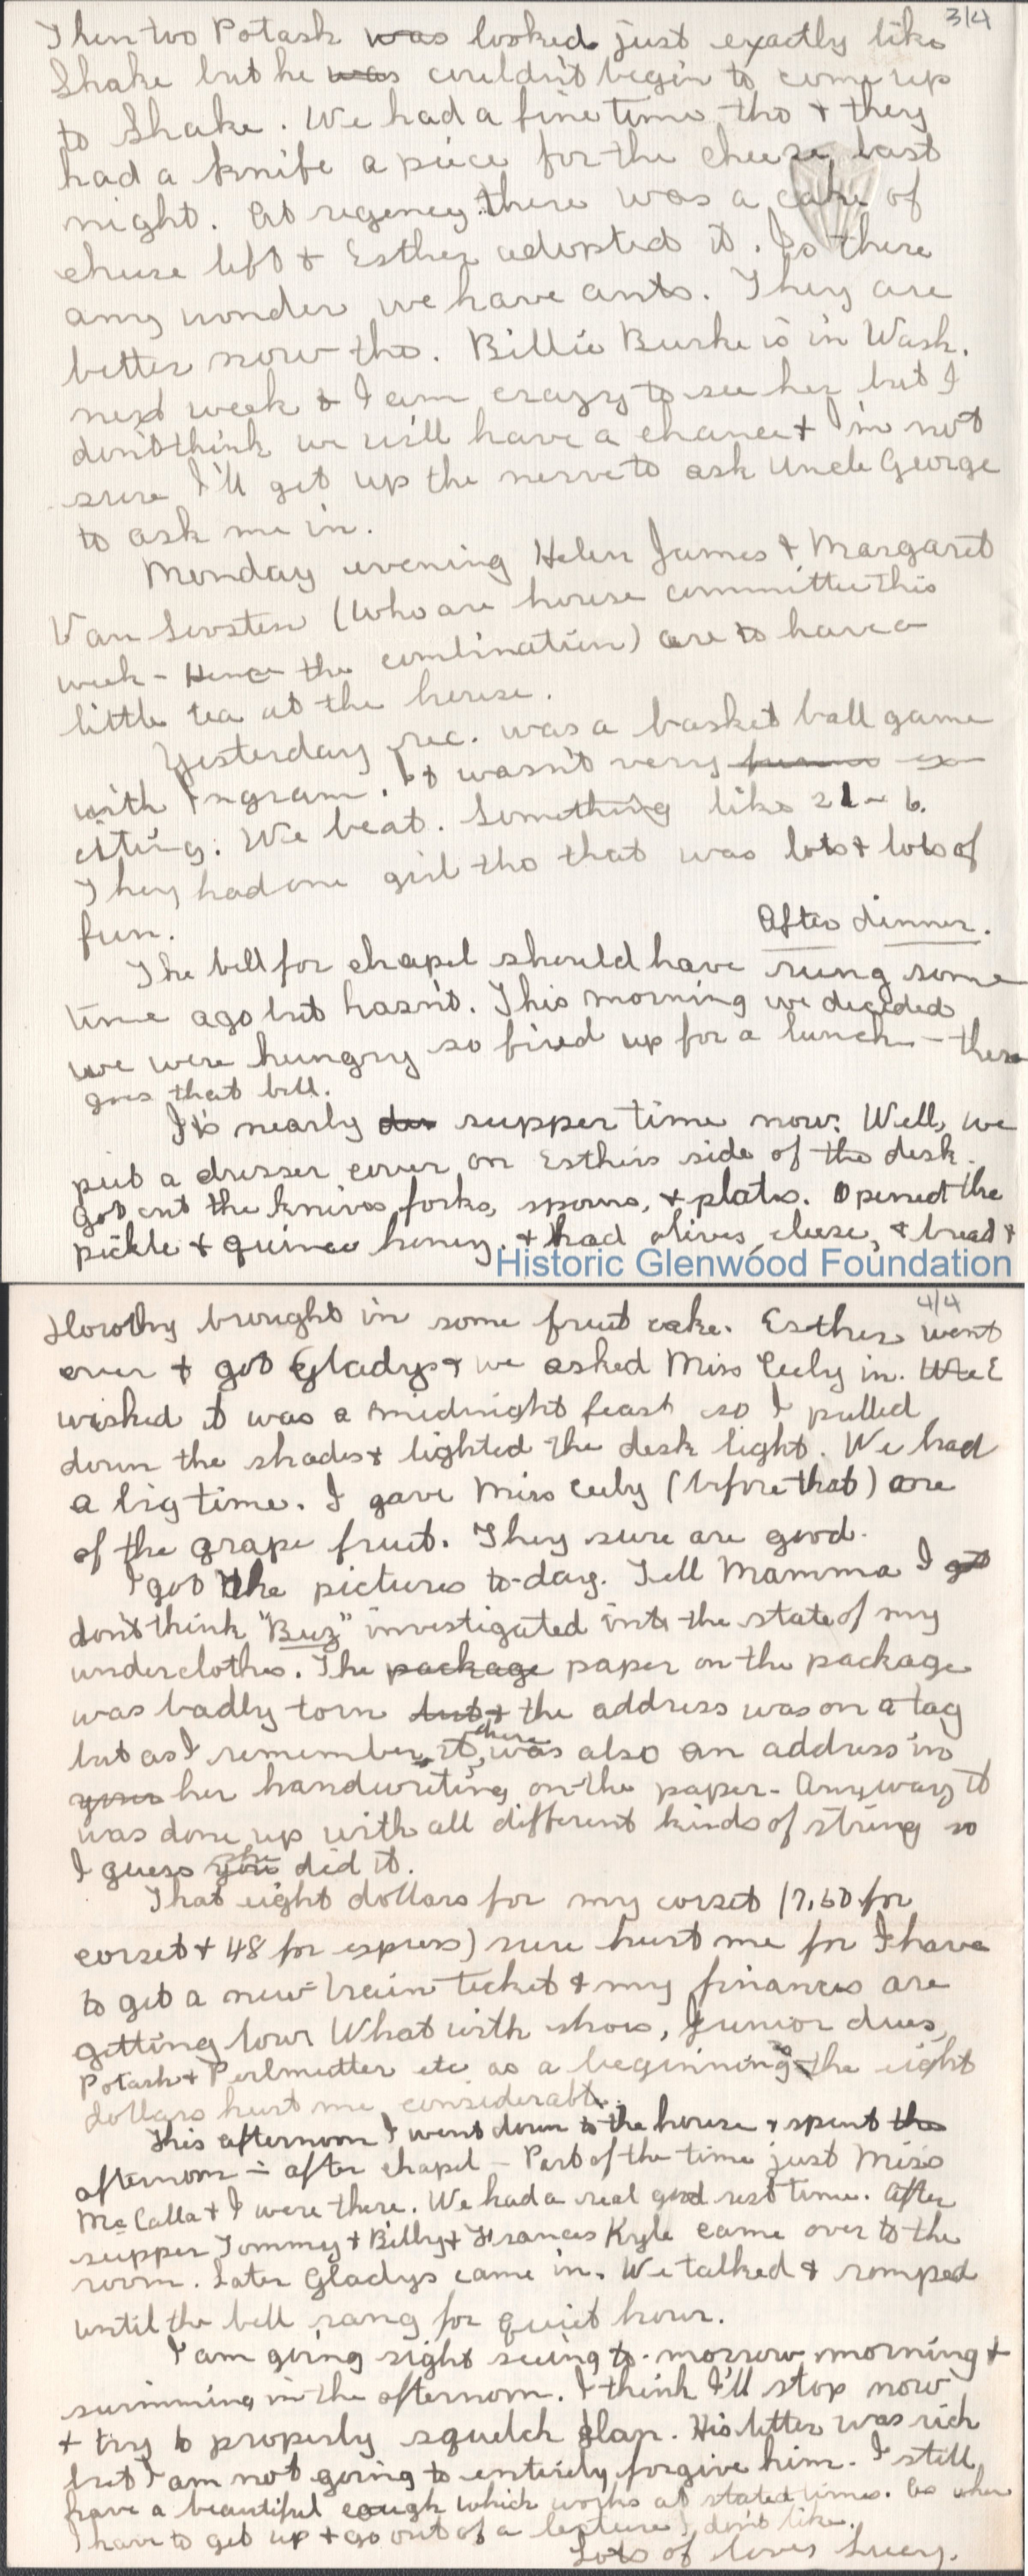 3/4
Then too Potash was looked just exactly like
Shake but he was couldn't begin to come up
to Shake. We had a fine time tho & they
had a knife a piece for the cheese last
night. At regency there was a cake of
cheese left & Esther adopted it. Is there
any wonder we have ants. They are
better now tho. Billie Burke is in Wash.
next week & I am crazy to see her but I
don't think we will have a chance & I'm not
sure I'll get up the nerve to ask Uncle George
to ask me in.
Monday evening Helen James & Margaret
Van (who are house committee this
week - Hence the combination) are to have a
little tea at the house.
Yesterday rec. was a basket ball game
with Ingram. It wasn't very ex-
citing. We beat. Something like 21 - 6.
They had one girl tho that was lots & lots of
fun.
After dinner.
The bell for chapel should have rung some
time ago but hasn't. This morning we decided
we were hungry so fixed up for a lunch - there
goes that bell.
It's nearly supper time now. Well, we
put a dresser cover on Esther's side of the desk.
got out the knives, forks, spoons, & plates. Opened the
pickle & quince honey, & had olives, cheese, & bread &
Historic Glenwood Foundation
4/4
Dorothy brought in some fruit cake. Esther went
over & got Gladys & we asked Miss Ceely in. We E
wished it was a midnight feast so I pulled
down the shades & lighted the desk light. We had
a big time. I gave Miss Ceely (before that) one
of the grape fruit. They sure are good.
I got the pictures to-day. Tell Mamma I got
don't think "Buz" investigated into the state of my
underclothes. The package paper on the package
was badly torn but & the address was on a tag
but as I remember it, there was also an address in
your her handwriting on the paper - Anyway it
was done up with all different kinds of string so
I guess you she did it.
That eight dollars for my corset (7.50 for
corset & 48 for express) sure hurt me for I have
to get a new train ticket & my finances are
getting low. What with shoes, Junior dues,
Potash & Perlmutter etc as a beginning the eight
dollars hurt me considerable.
This afternoon I went down to the house & spent the
afternoon - after chapel - Part of the time just Miss
McCalla & I were there. We had a real good rest time. After
supper Tommy & Billy & Frances Kyle came over to the
room. Later Gladys came in. We talked & romped
until the bell rang for quiet hour.
I am going sight seeing to-morrow morning &
swimming in the afternoon. I think I'll stop now
& try to properly squelch Alan. His letter was rich
but I am not going to entirely forgive him. I still
have a beautiful cough which works at stated times. As when
I have to get up & go out of a lecture I don't like.
Lots of love Lucy.